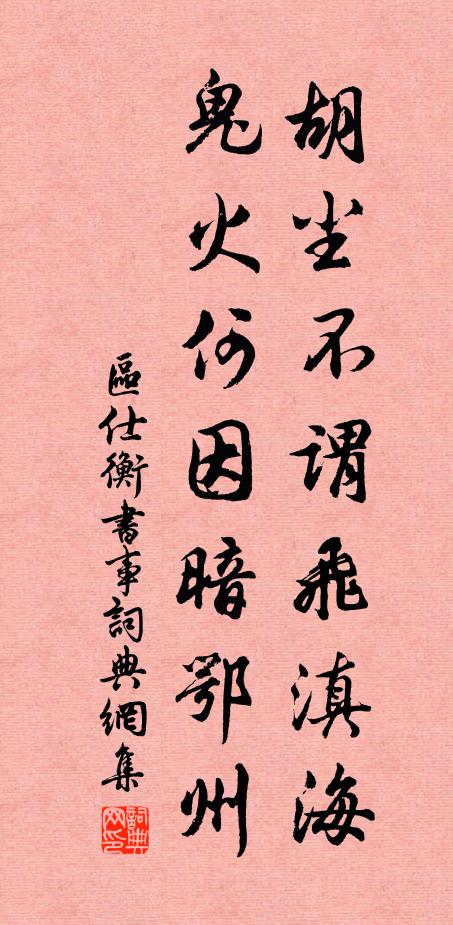 胡尘不谓飛滇海
鬼火何因暗鄂州
區仕衡書事詞典網集
詞典网印